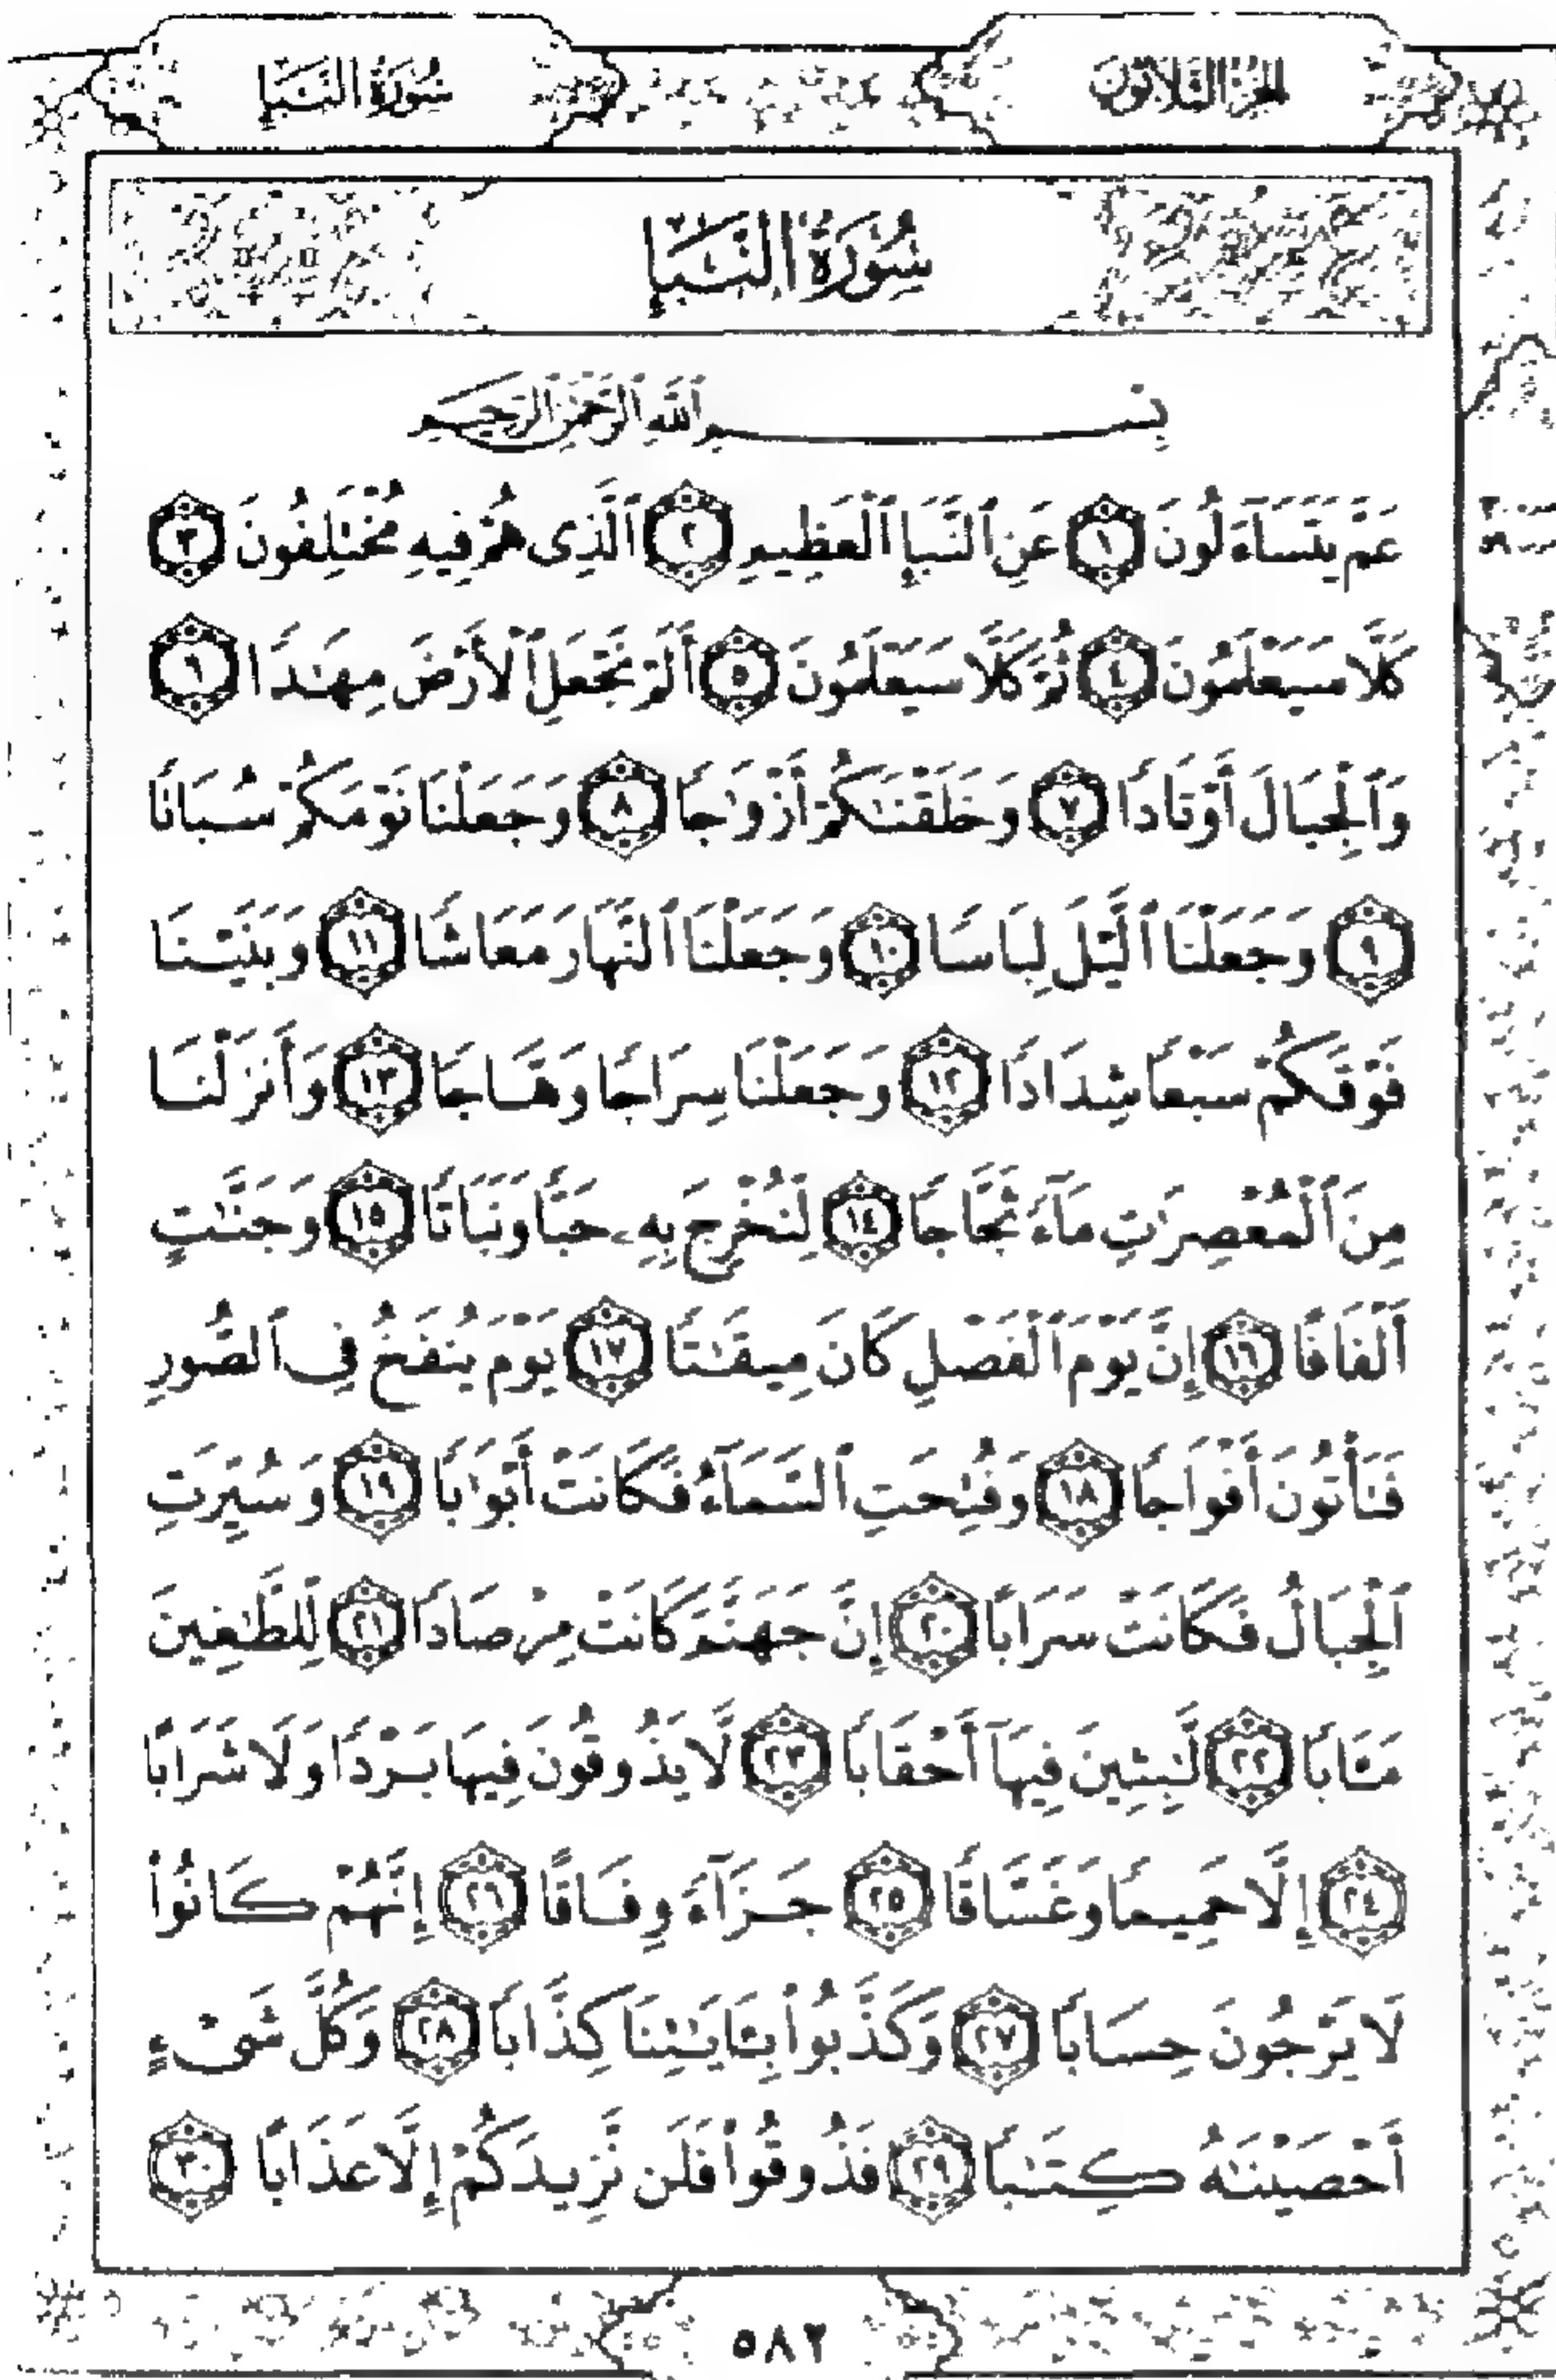 الجزء الثلاثون
سُورَةُ النَّبَإِ
سُورَةُ النَّبَإِ
بِسْمِ ٱللَّهِ ٱلرَّحْمَٰنِ ٱلرَّحِيمِ
عَمَّ يَتَسَآءَلُونَ ١ عَنِ ٱلنَّبَإِ ٱلْعَظِيمِ ٢ ٱلَّذِى هُمْ فِيهِ مُخْتَلِفُونَ ٣
كَلَّا سَيَعْلَمُونَ ٤ ثُمَّ كَلَّا سَيَعْلَمُونَ ٥ أَلَمْ نَجْعَلِ ٱلْأَرْضَ مِهَٰدًا ٦
وَٱلْجِبَالَ أَوْتَادًا ٧ وَخَلَقْنَٰكُمْ أَزْوَٰجًا ٨ وَجَعَلْنَا نَوْمَكُمْ سُبَاتًا
٩ وَجَعَلْنَا ٱلَّيْلَ لِبَاسًا ١٠ وَجَعَلْنَا ٱلنَّهَارَ مَعَاشًا ١١ وَبَنَيْنَا
فَوْقَكُمْ سَبْعًا شِدَادًا ١٢ وَجَعَلْنَا سِرَاجًا وَهَّاجًا ١٣ وَأَنزَلْنَا
مِنَ ٱلْمُعْصِرَٰتِ مَآءً ثَجَّاجًا ١٤ لِّنُخْرِجَ بِهِۦ حَبًّا وَنَبَاتًا ١٥ وَجَنَّٰتٍ
أَلْفَافًا ١٦ إِنَّ يَوْمَ ٱلْفَصْلِ كَانَ مِيقَٰتًا ١٧ يَوْمَ يُنفَخُ فِى ٱلصُّورِ
فَتَأْتُونَ أَفْوَاجًا ١٨ وَفُتِحَتِ ٱلسَّمَآءُ فَكَانَتْ أَبْوَٰبًا ١٩ وَسُيِّرَتِ
ٱلْجِبَالُ فَكَانَتْ سَرَابًا ٢٠ إِنَّ جَهَنَّمَ كَانَتْ مِرْصَادًا ٢١ لِّلطَّٰغِينَ
مَـَٔابًا ٢٢ لَّٰبِثِينَ فِيهَآ أَحْقَابًا ٢٣ لَّا يَذُوقُونَ فِيهَا بَرْدًا وَلَا شَرَابًا
٢٤ إِلَّا حَمِيمًا وَغَسَّاقًا ٢٥ جَزَآءً وِفَاقًا ٢٦ إِنَّهُمْ كَانُوا۟
لَا يَرْجُونَ حِسَابًا ٢٧ وَكَذَّبُوا۟ بِـَٔايَٰتِنَا كِذَّابًا ٢٨ وَكُلَّ شَىْءٍ
أَحْصَيْنَٰهُ كِتَٰبًا ٢٩ فَذُوقُوا۟ فَلَن نَّزِيدَكُمْ إِلَّا عَذَابًا ٣٠
٥٨٢